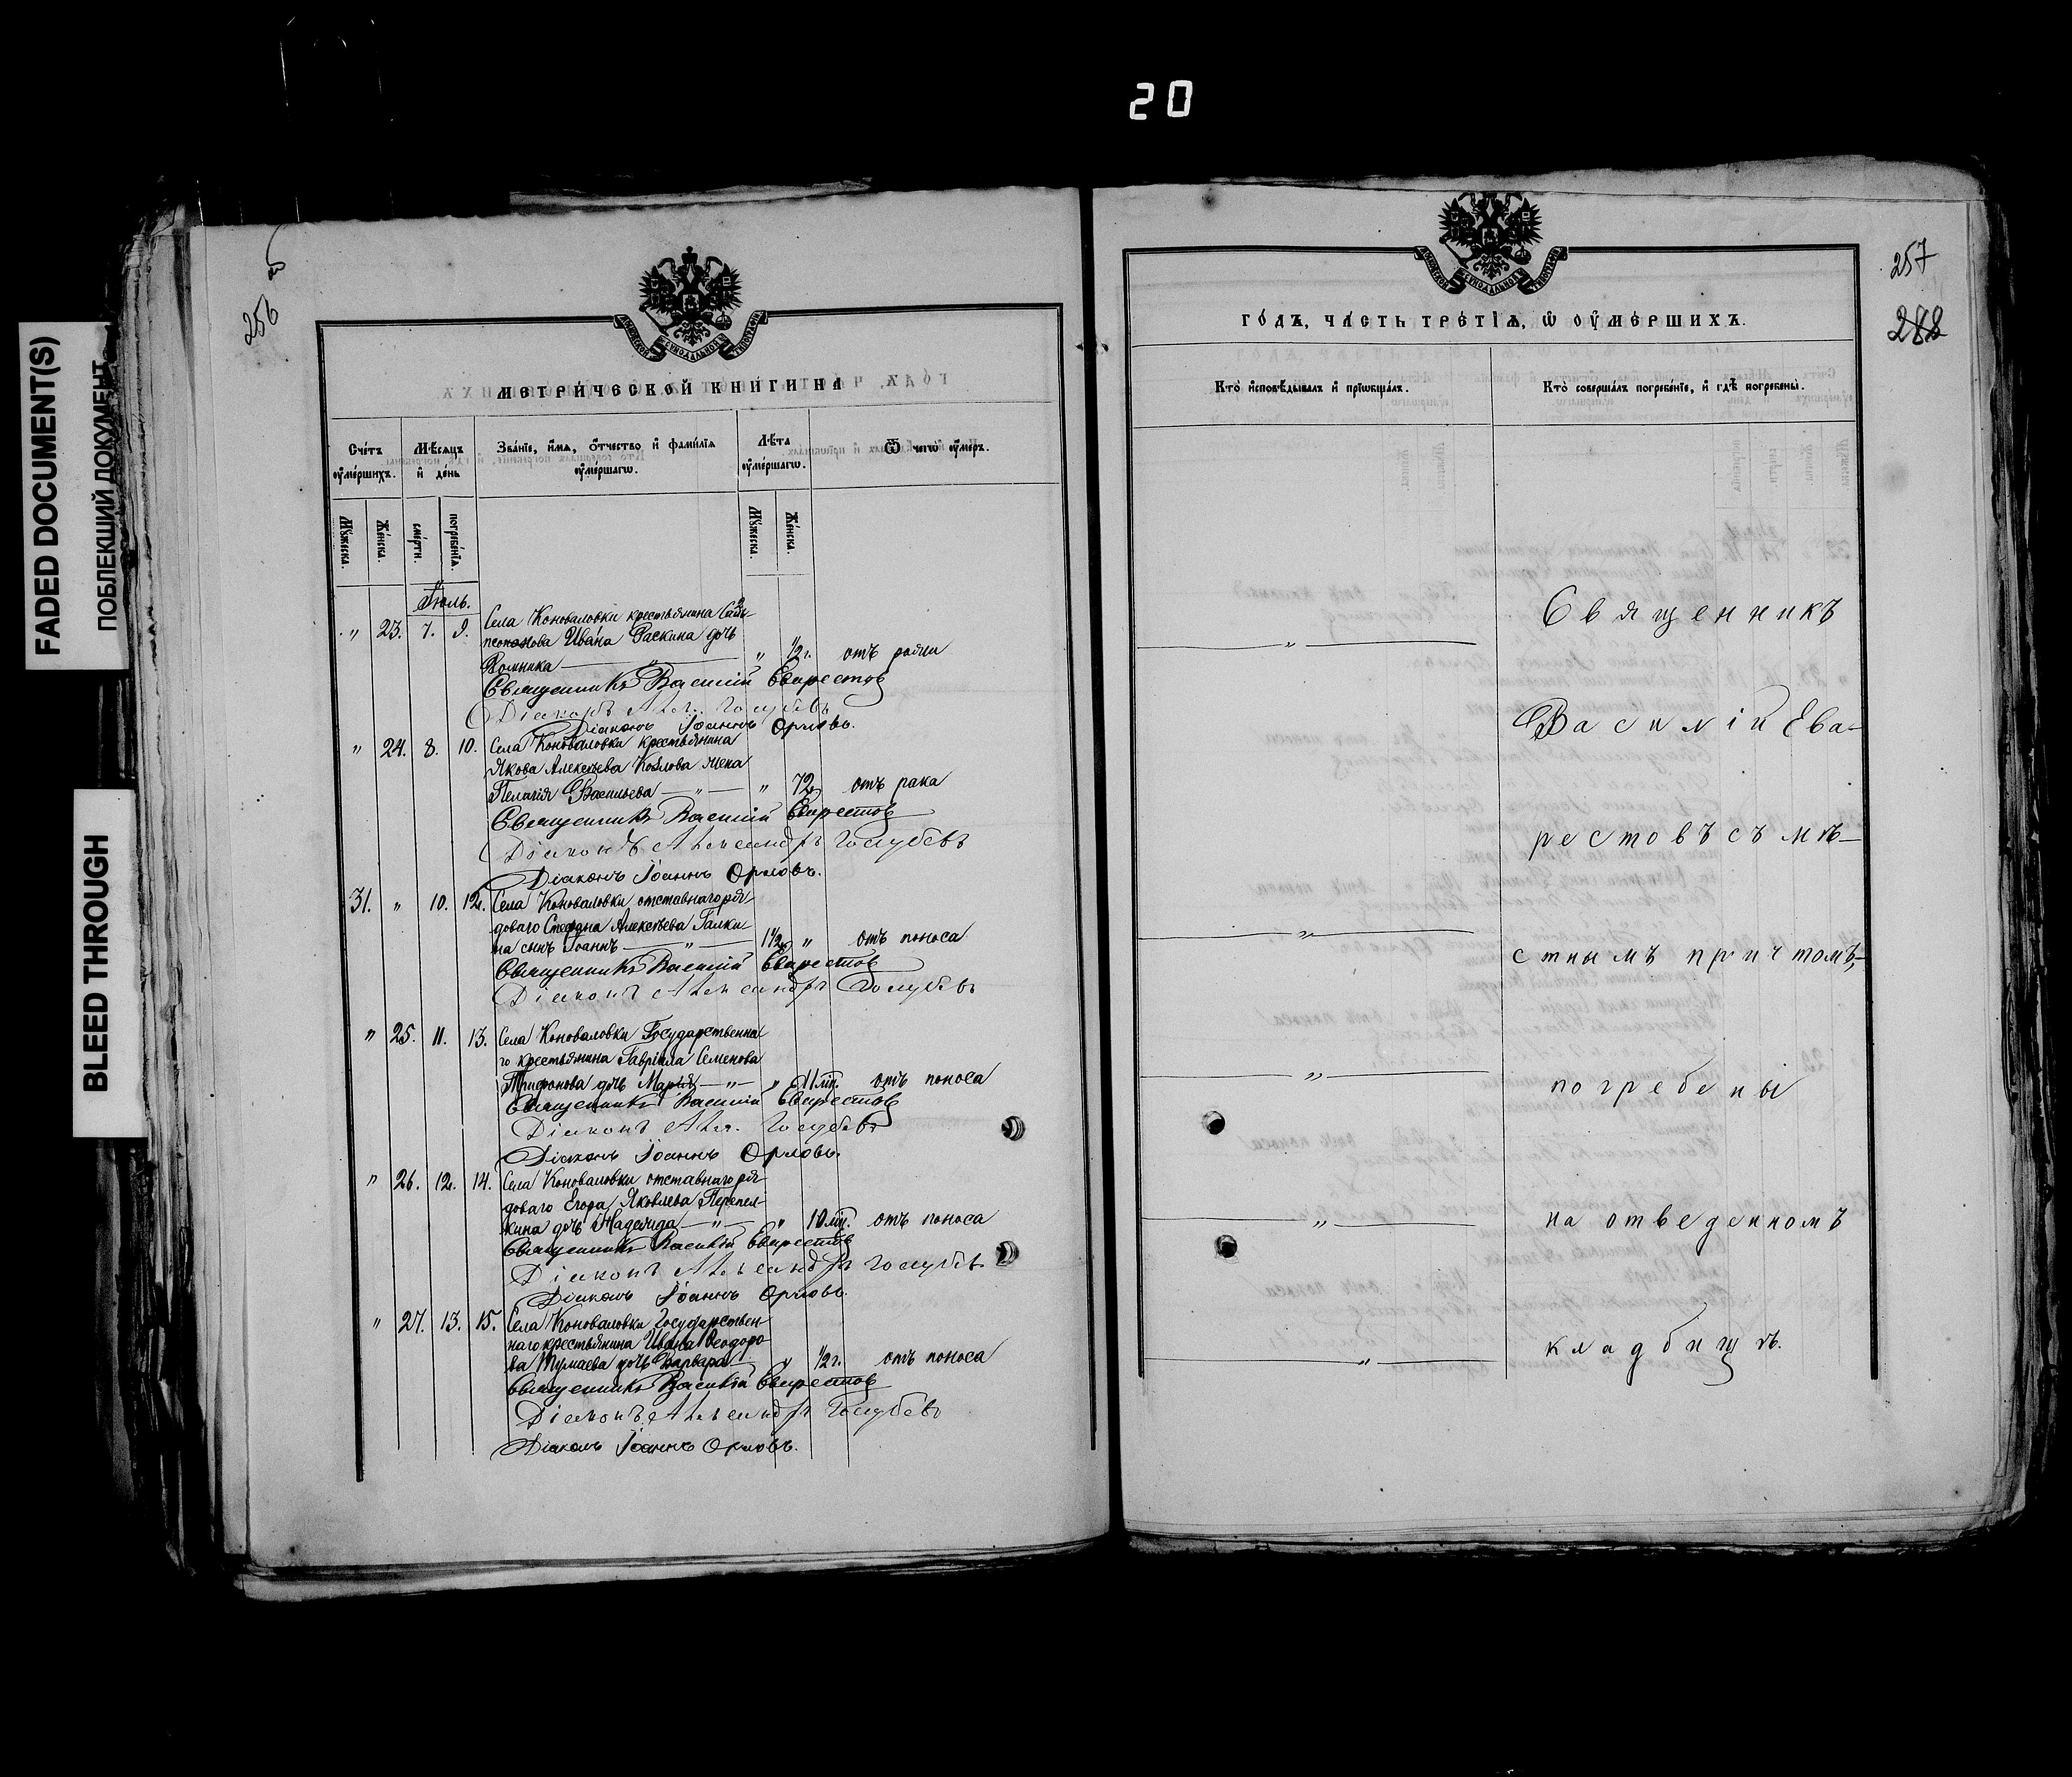 20
FADED DOCUMENT(S)
ПОБЛЕКШИЙ ДОКУМЕНТ
BLEED THROUGH
256 об
МЕТРИЧЕСКОЙ КНИГИ НА
Счетъ оумершихъ.
Мѣсяцъ и день
Званіе, имя, отчество и фамилія оумершагѡ.
Лѣта оумершагѡ.
Ѿ чегѡ оумеръ.
Мужеска.
Женска.
смерти.
погребенія.
Мужеска.
Женска.
Іюль.
" 23. 7. 9. Села Коноваловки крестьянина
Ивана Раскина дочь
" 1/2 г. отъ
Священникъ Василій Еварестов
Діаконъ Алек. Голубевъ
Діаконъ Іоаннъ Орловъ.
" 24. 8. 10. Села Коноваловки крестьянина
Якова Алексѣева Козлова жена
Пелагія Васильева — " — " 72 отъ рака
Священникъ Василій Еварестов
Діаконъ Александръ Голубевъ
Діаконъ Іоаннъ Орловъ.
31. " 10. 12. Села Коноваловки отставнаго ря-
доваго Стефана Алексѣева Галки-
на сынъ Іоаннъ — " — 1 1/2 " отъ поноса
Священникъ Василій Еварестов
Діаконъ Александръ Голубевъ
" 25. 11. 13. Села Коноваловки Государственна
го крестьянина Гавріила Семенова
Трифонова дочь Марія — " — " 11 м. отъ поноса
Священникъ Василій Еварестов
Діаконъ Алек. Голубевъ
Діаконъ Іоаннъ Орловъ.
" 26. 12. 14. Села Коноваловки отставнаго ря-
доваго Егора Яковлева Перепел-
кина дочь Надежда — " — " 10 м. отъ поноса
Священникъ Василій Еварестов
Діаконъ Александръ Голубевъ
Діаконъ Іоаннъ Орловъ.
" 27. 13. 15. Села Коноваловки Государствен-
наго крестьянина Ивана Ѳеодоро-
ва дочь Варвара " 1/2 г. отъ поноса
Священникъ Василій Еварестов
Діаконъ Александръ Голубевъ
Діаконъ Іоаннъ Орловъ.
257
288
ГОДЪ, ЧАСТЬ ТРЕТІЯ, Ѡ ОУМЕРШИХЪ.
Кто исповѣдывалъ и пріѡбщалъ.
Кто совершалъ погребеніе, и гдѣ погребены.
Священникъ
— " —
Василій Ева-
рестовъ съ мѣ-
— " —
стнымъ причтомъ,
— " —
погребены
— " —
на отведенномъ
— " —
кладбищѣ.